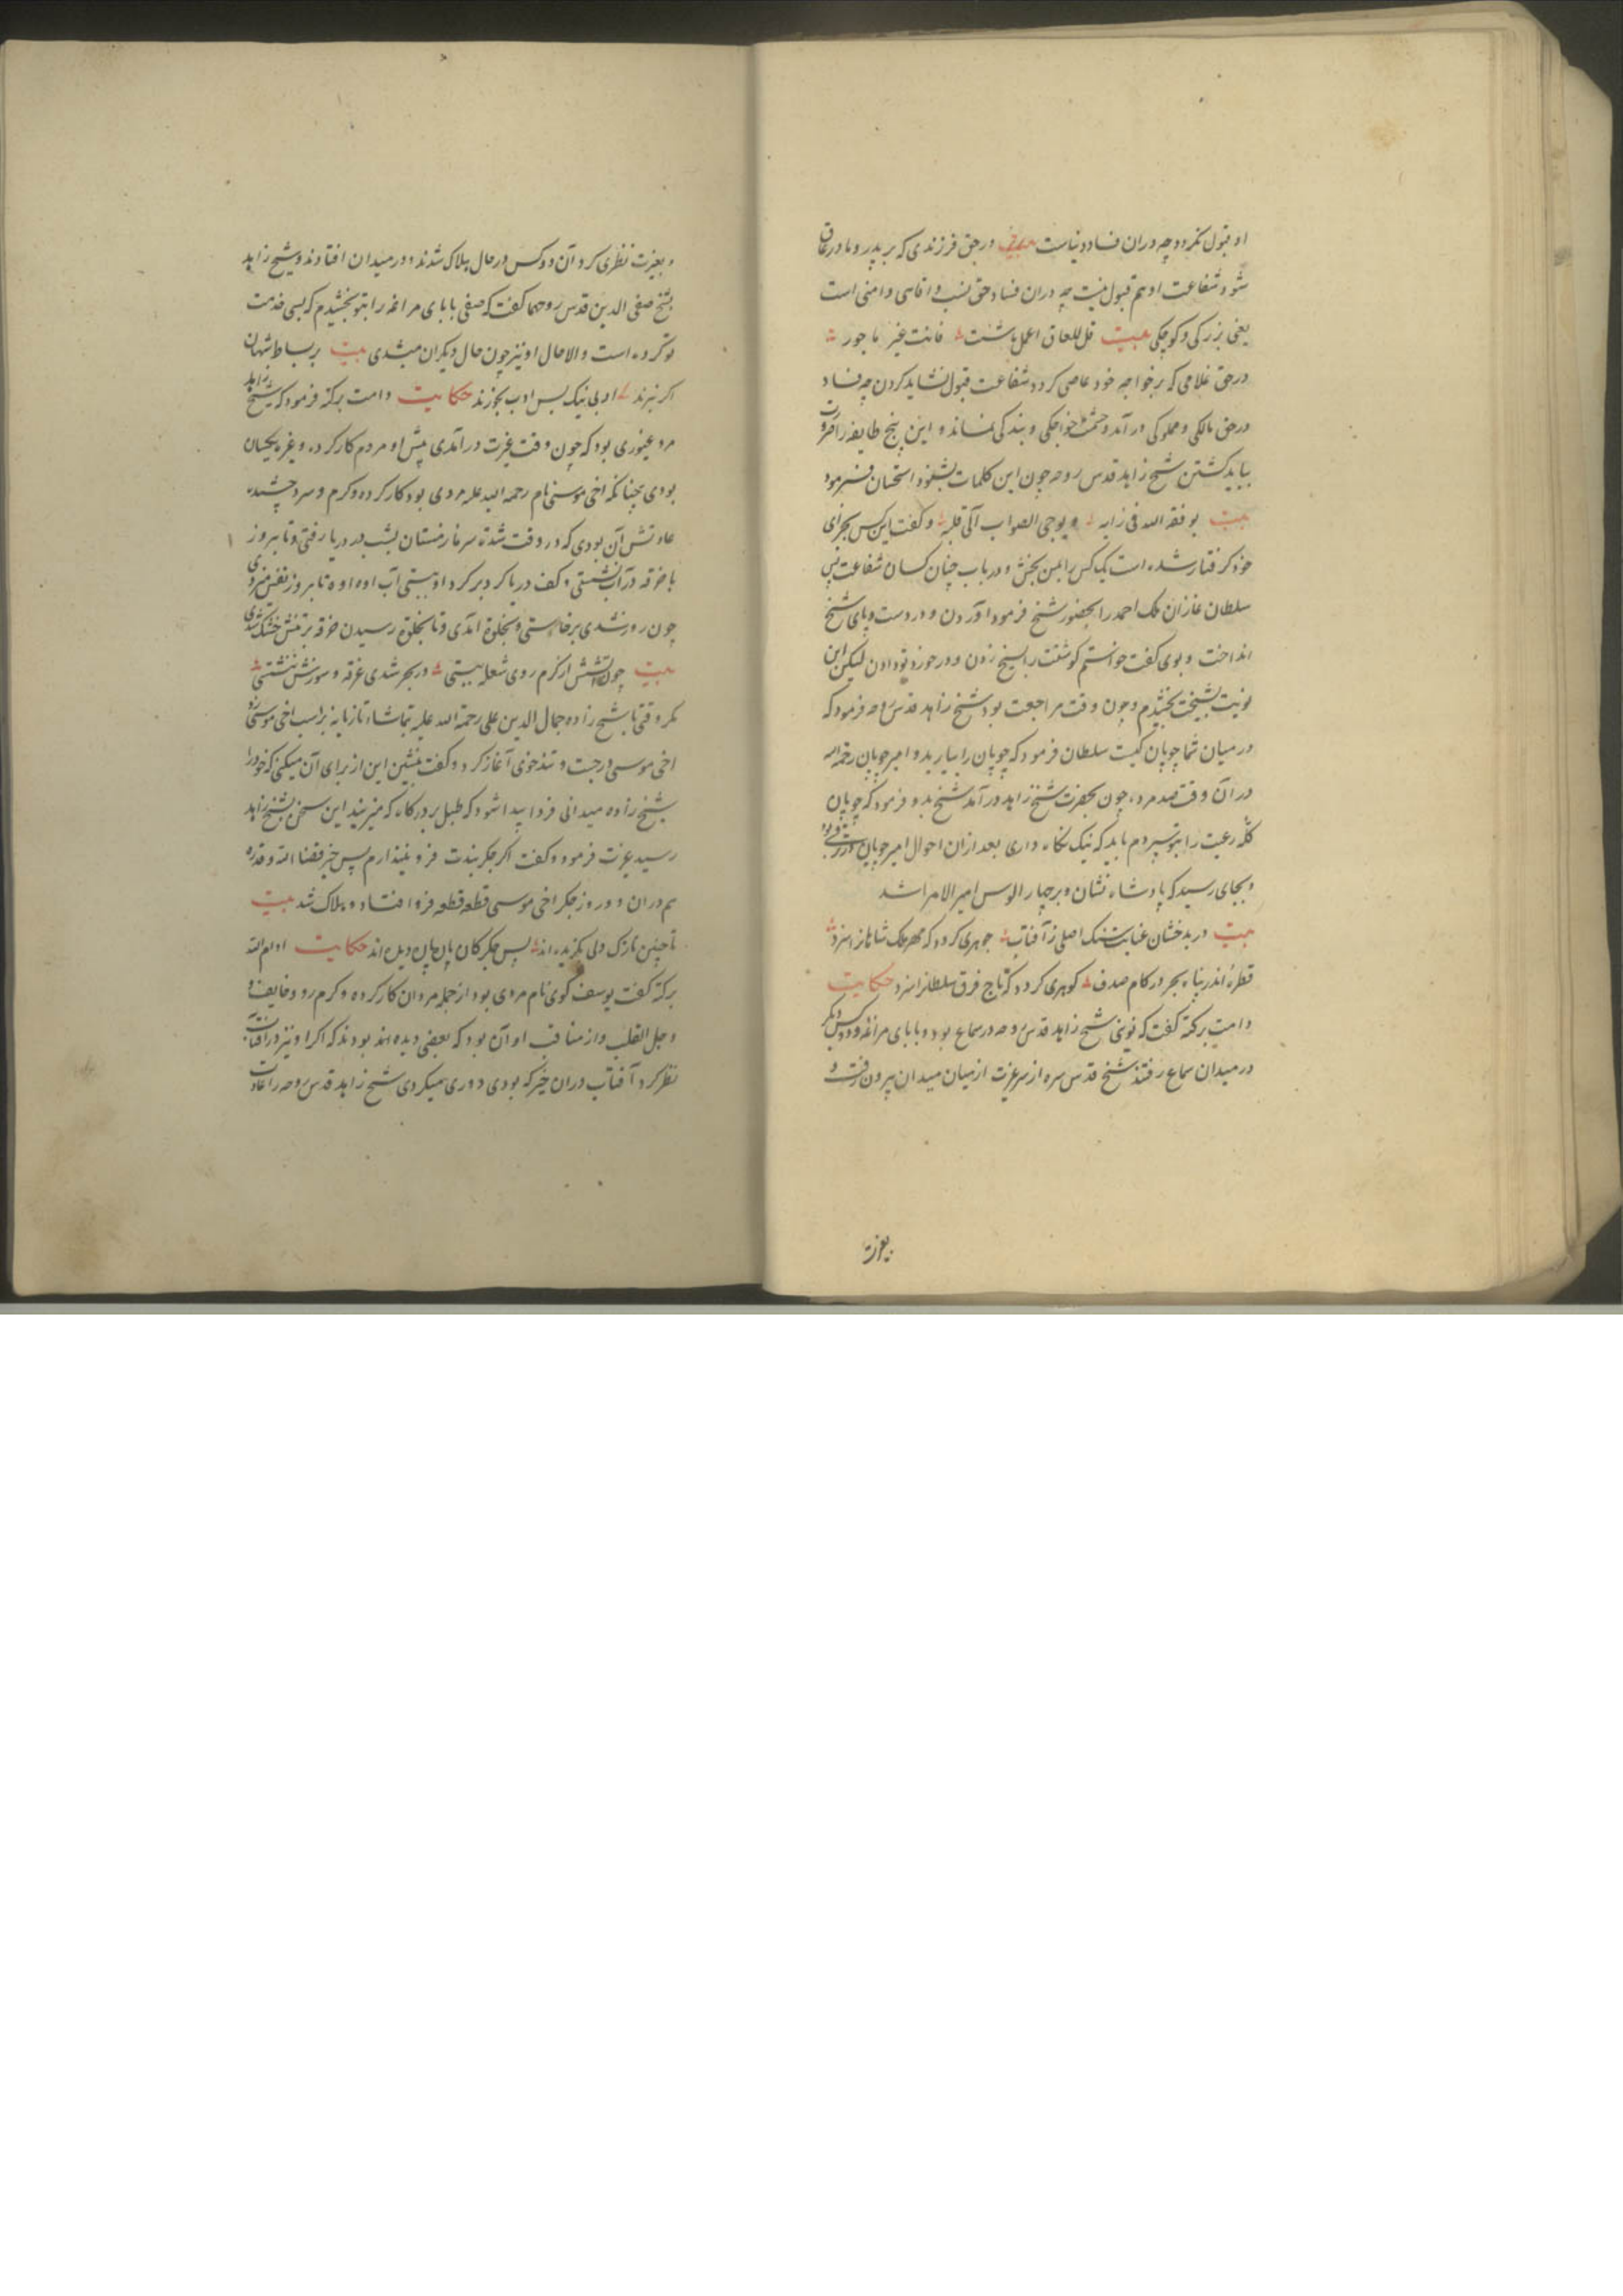 او قبول نکردد چه دران فساد دنیاست در حق فرزندی که بر پدر و مادر عاق
شود شفاعت او هم قبول نیست چه دران فساد حق نسب و اقاسی و امنی است
یعنی بزرکی و کوچکی بیت قل للعاق اعمل ما شئت فانت غیر ماجور
در حق غلامی که بر خواجه خود عاصی کردد شفاعت قبول نشاید کردن چه فساد
در حق مالکی و مملوکی در آمد و حشمت خواجکی و بندکی نماند و این پنج طایفه را
بباید کشتن شیخ زاهد قدس روحه چون این کلمات بشنود استحسان فرمود
بیت یوفقه الله فی رایه و یوحی الصواب الی قلبه و کفت این کس بجزای
خود کرفتار شده است یک کس را بمن بخش و در باب چنان کسان شفاعت
سلطان غازان ملک احمد را بحضور شیخ فرمود آوردن و در دست و پای شیخ
انداخت و بوی کفت خواستم کوشتت را بسیخ زدن و در خورد تو دادن لیکن این
نوبت بشیخت بخشیدم و چون وقت مراجعت بود شیخ زاهد قدس روحه فرمود که
در میان شما چوپان کیست سلطان فرمود که چوپان را بیارید و امیر چوپان رحمه الله
در آن وقت صد مرده چون بحضرت شیخ زاهد در آمد شیخ بدو فرمود که چوپان
کله رعیت را بتو سپردم باید که نیک نکاه داری بعد ازان احوال امیر چوپان
و بجای رسید که پادشاه نشان و بر چهار الوس امیر الامرا شد
بیت در بدخشان عنایت سنک اصلی ز آفتاب جوهری کردد که مهر ملک شاهانرا سزد
قطره اندر پناه بحر در کام صدف کوهری کردد که تاج فرق سلطانرا سزد حکایت
دامت برکته کفت که نوبتی شیخ زاهد قدس روحه در سماع بود و بابای مراغه و دو کس دیکر
در میدان سماع رفتند شیخ قدس سره از سر غیرت از میان میدان بیرون رفت و
بغیرت
و بغیرت نظری کرد آن دو کس در حال هلاک شدند و در میدان افتادند و شیخ زاهد
بشیخ صفی الدین قدس روحهما کفت که صفی بابای مراغه را بتو بخشیدم که بسی خدمت
تو کرده است والا حال او نیز چون حال دیکران میشدی بیت بر بساط شهان
اکر نبرند ادبی نیک بس ادب بخورند حکایت دامت برکته فرمود که شیخ زاهد
مرد غیوری بود که چون وقت غیرت در آمدی پیش او مردم کار کرده و غیره یکسان
بودی چنانکه اخی موسی نام رحمه الله علیه مردی بود کار کرده و کرم و سرد چشیده
عادتش آن بودی که در وقت شدة سرما زمستان بشب در دریا رفتی و تا بروز
با خرقه در آب نشستی و کف دریا کرد بر کرد او ببستی آب او تا بروز نفس
چون روز شدی برخاستی و بخلوة آمدی و تا بخلوة رسیدن خرقه بر تنش خشک شدی
بیت چون آتشش از کرم روی شعله ببستی در بحر شدی غرقه و سوزش ننشستی
مکر وقتی با شیخ زاده جمال الدین علی رحمه الله علیه بتماشا تازیانه بر اسب اخی موسی زد
اخی موسی در جست و تندخوی آغاز کرد و کفت بنشین این از برای آن میکنی که خود را
شیخ زاده میدانی فردا پیدا شود که طبل بر درکاه که میزنند این سخن بشیخ زاهد
رسید غیرت فرمود و کفت اکر جکر بندت فرو نیندازم پس قضا الله و قدره
هم دران دو روز جکر اخی موسی قطعه قطعه فرو افتاد و هلاک شد بیت
تا چنین نازک دلی بکزیده اند بس جکر کان پاره پاره دیده اند حکایت ادام الله
برکته کفت یوسف کوی نام مردی بود از جمله مردان کار کرده و کرم رو و خایف و
وجل القلب و از مناقب او آن بود که بعضی دیده اند بودند که اکر او نیز در آفتاب
نظر کرد آفتاب دران خیره که بودی دوری میکردی شیخ زاهد قدس روحه را عادت